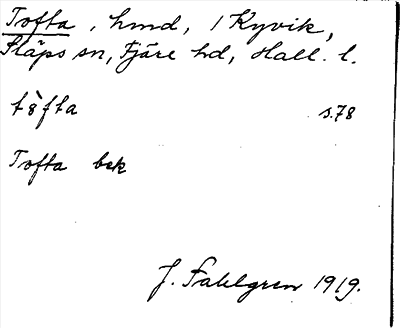 Tofta, hmd, i Kyvik,
Släps sn, Fjäre hd, Hall. l.
tὸfta s.78
Tofta bek
J. Sahlgren 1919.